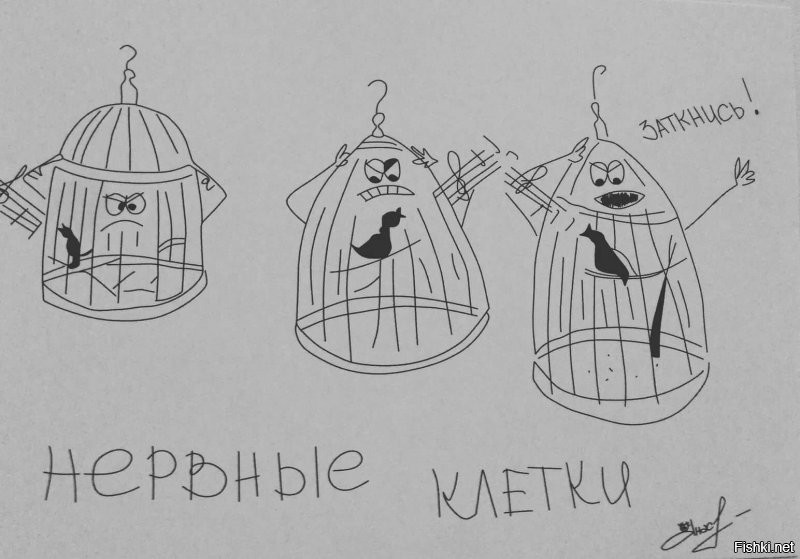 ЗАТКНИСЬ!
НЕРВНЫЕ КЛЕТКИ
Fishki.net